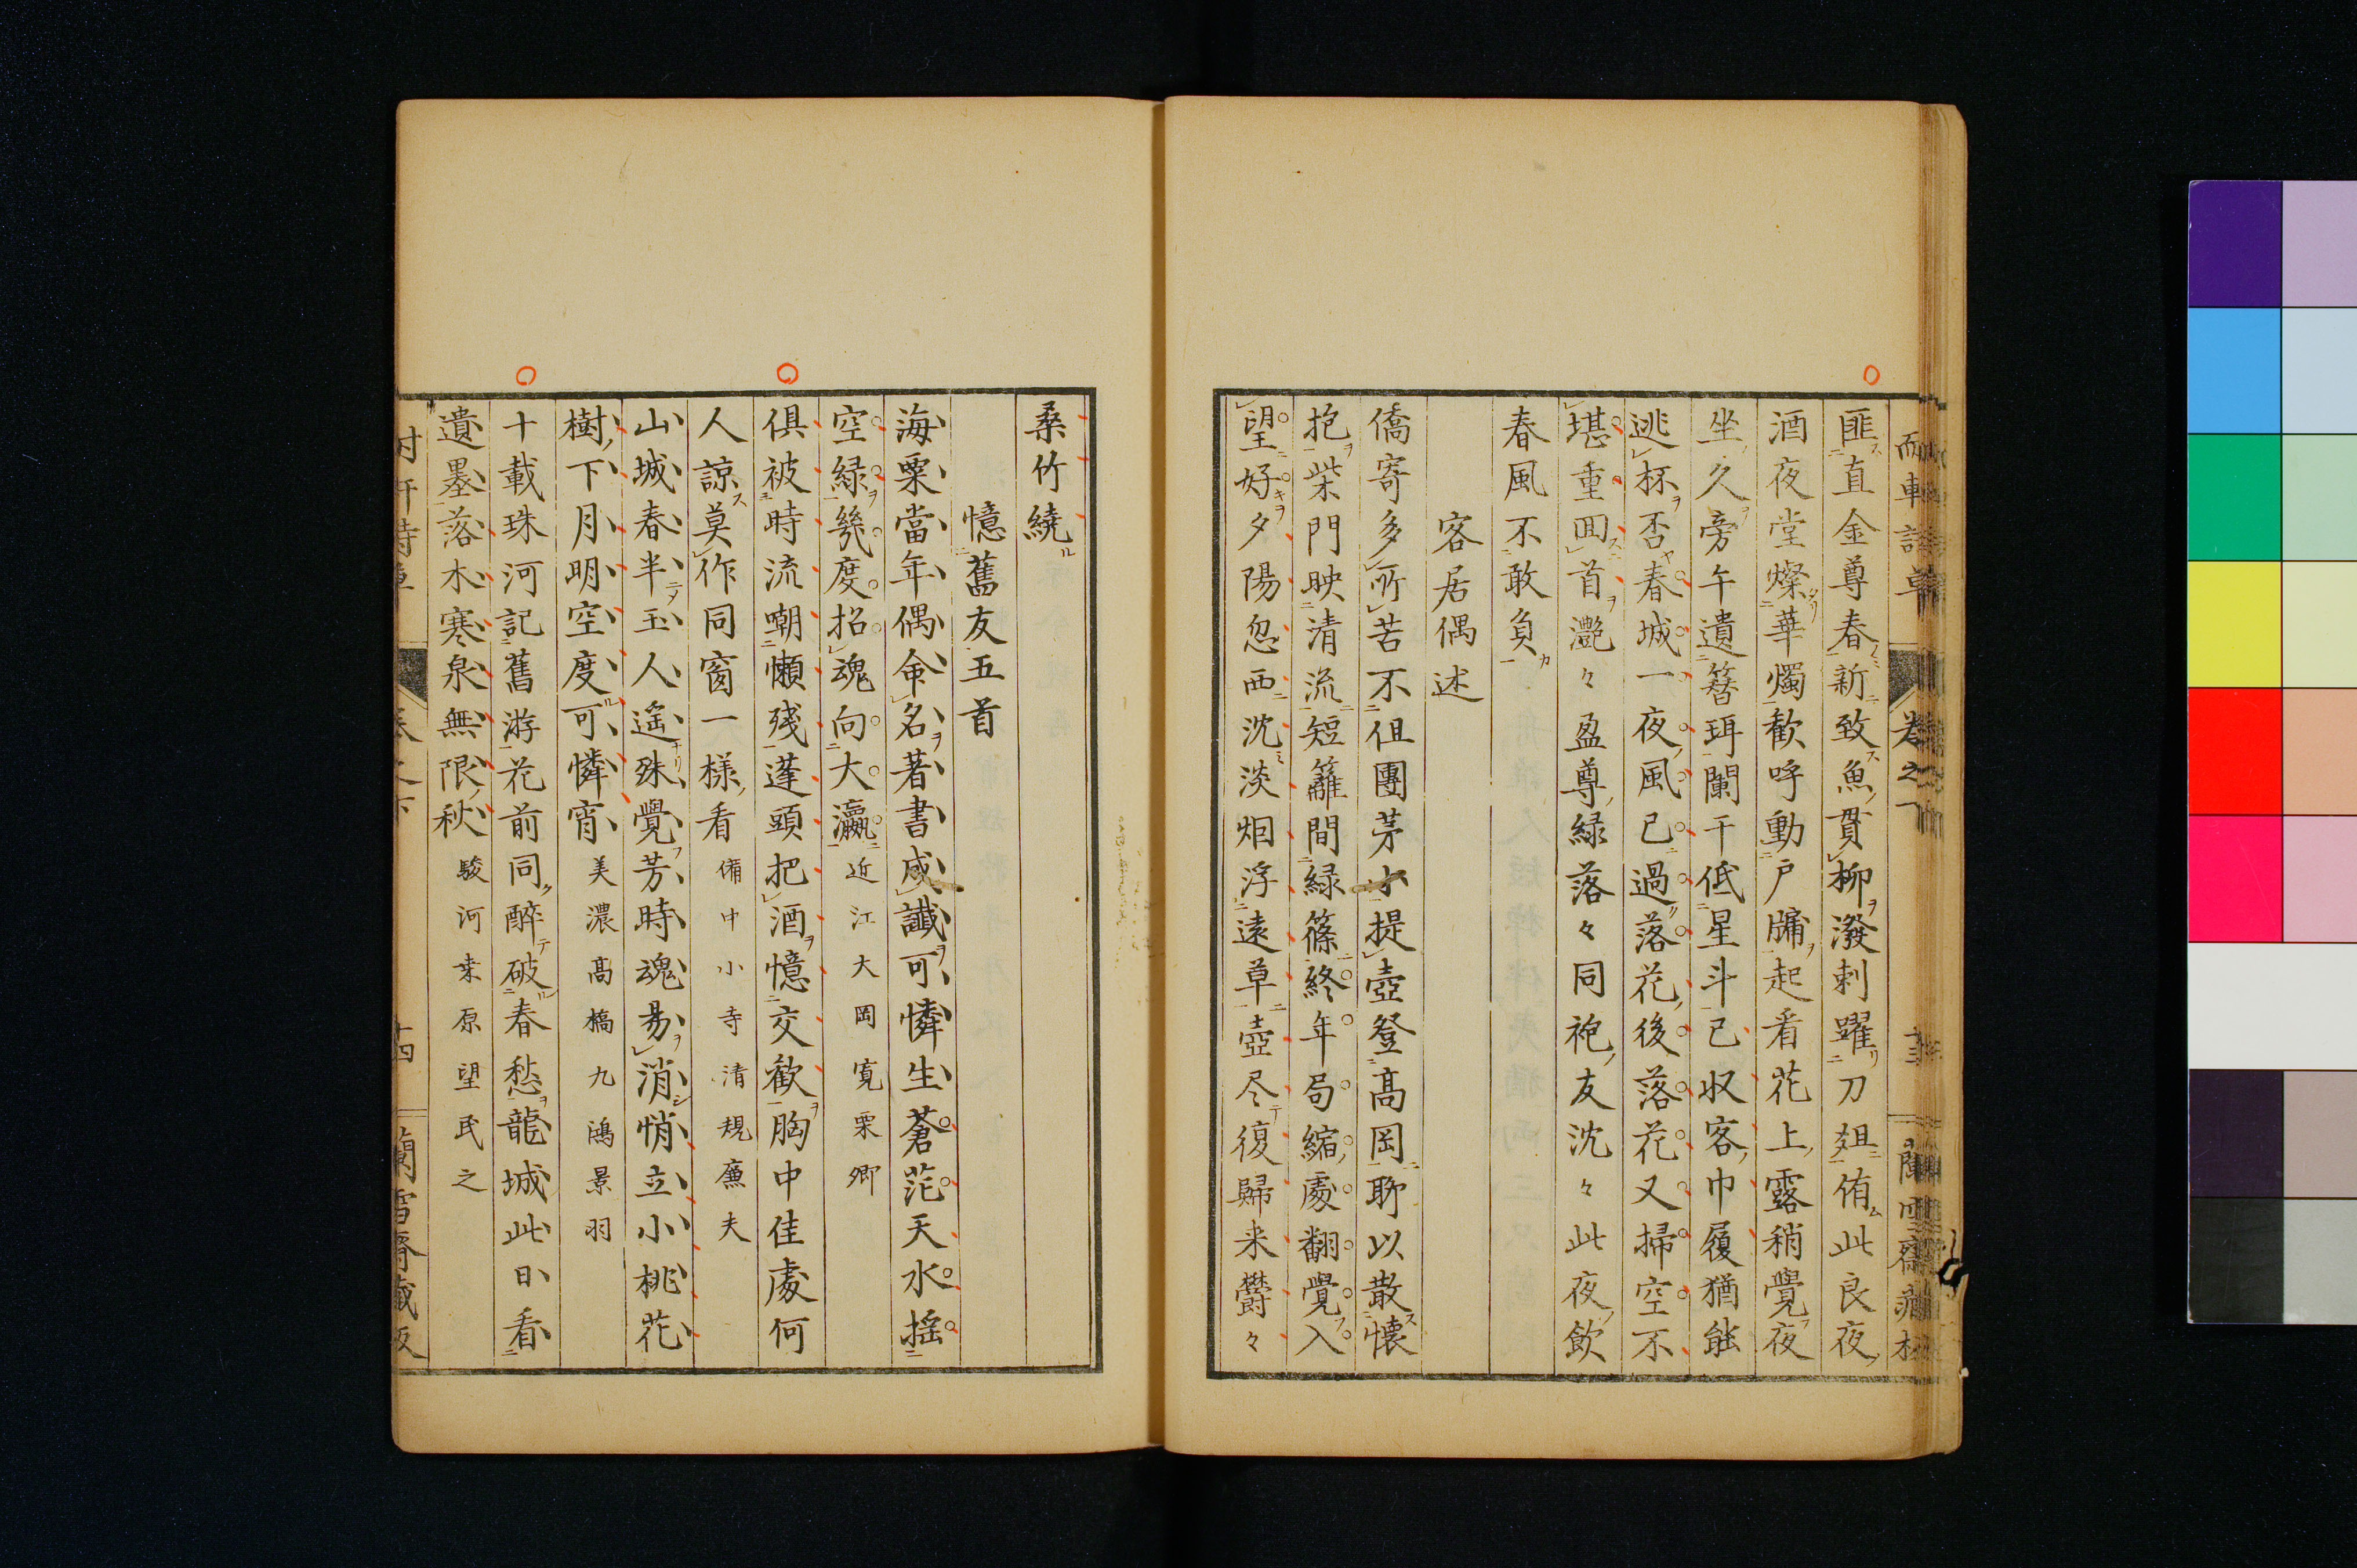 匪直金尊春新致魚貫柳潑剌躍刀俎侑此良夜
酒夜堂燦華燭歡呼動戶牖起看花上露稍覺夜
坐久旁午遺簪珥闌干低星斗已収客巾履猶能
逃杯否春城一夜風已過落花後落花又掃空不
堪重回首灔々盈尊綠落々同袍友沈々此夜飲
春風不敢負
客居偶述
僑寄多所苦不但團茅小提壺登高岡聊以散懐
抱柴門映清流短籬間緑篠終年局縮處翻覺入
望好夕陽忽西沈淡烟浮遠草壺尽復歸来欝々
桑竹繞
憶舊友五首
海粟當年偶命名著書成讖可憐生蒼茫天水揺
空緑幾度招魂向大瀛近江大岡寛栗卿
俱被時流嘲懶殘蓬頭把酒憶交歡胸中佳處何
人諒莫作同窗一樣看備中小寺清規廉夫
山城春半玉人遙殊覺芳時魂易消悄立小桃花
樹下月明空度可憐宵美濃髙橋九鴻景羽
十載珠河記舊游花前同醉破春愁龍城此日看
遺墨落木寒泉無限秋駿河桒原望民之
卷之下
十四
蘭雪齋藏板